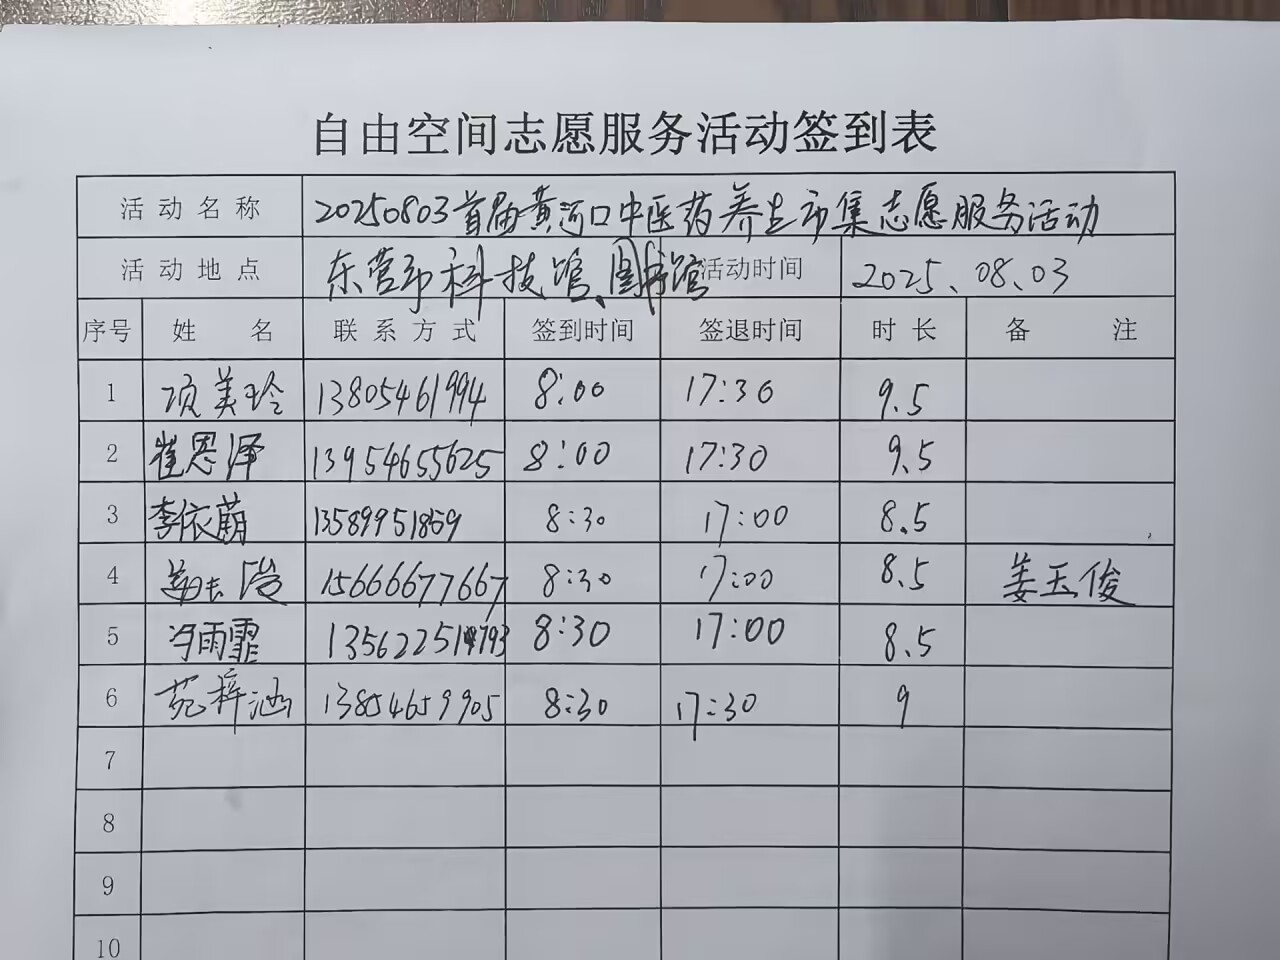 自由空间志愿服务活动签到表
活动名称 20250803首届黄河口中医药养生市集志愿服务活动
活动地点 东营市科技馆、图书馆 活动时间 2025.08.03
序号 姓名 联系方式 签到时间 签退时间 时长 备注
1 项美玲 13805461994 8:00 17:30 9.5
2 崔恩泽 13954655625 8:00 17:30 9.5
3 李依萌 13589951859 8:30 17:00 8.5
4 15666677667 8:30 17:00 8.5 姜玉俊
5 冯雨霏 8:30 17:00 8.5
6 苑梓涵 13854659905 8:30 17:30 9
7
8
9
10